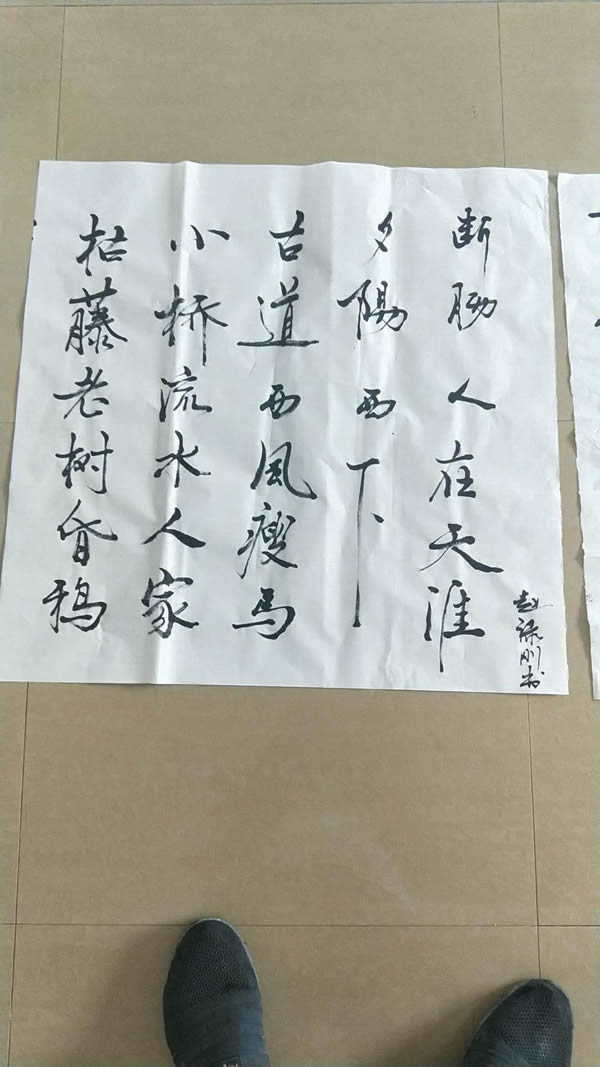 枯藤老树昏鸦
小桥流水人家
古道西風瘦马
夕陽西下
断肠人在天涯
赵刚书